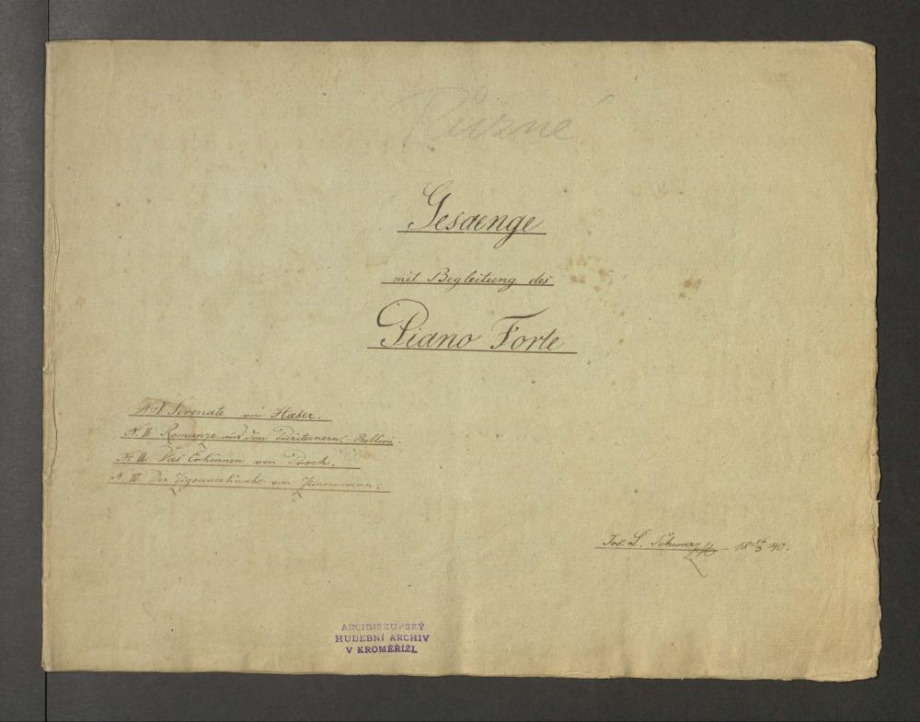 Různé
Gesaenge
mit Begleitung des
Piano Forte
N. I Serenate von Haeser.
N. II. Romanze aus den Puritanern, Bellini.
N. III. Das Erkennen von Proch.
N. IV. Der
Jos. L. Schwarz 1840.
ARCIBISKUPSKÝ
HUDEBNÍ ARCHIV
V KROMĚŘÍŽI.